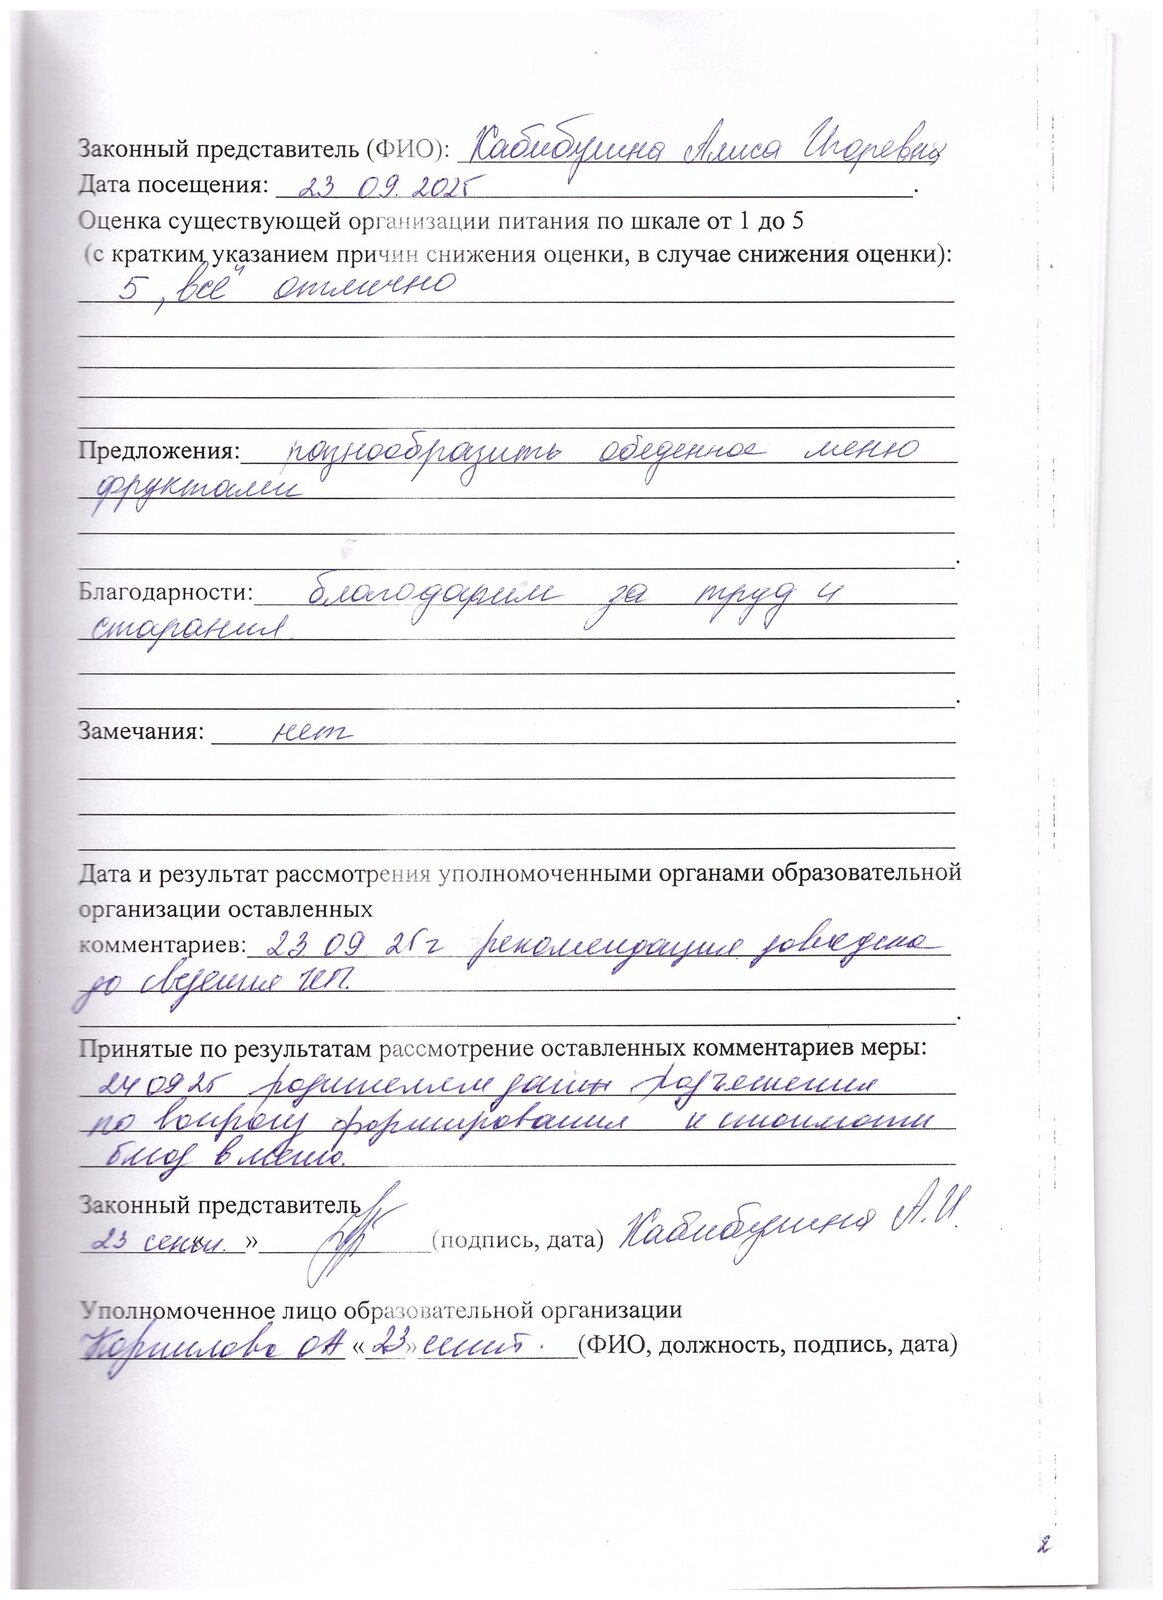 Законный представитель (ФИО): Кабибулина Алиса Игоревна
Дата посещения: 23 09. 2025.
Оценка существующей организации питания по шкале от 1 до 5
(с кратким указанием причин снижения оценки, в случае снижения оценки):
5 „всё" отлично
Предложения: разнообразить обеденное меню
фруктами
Благодарности: благодарим за труд и
старания.
Замечания: нет
Дата и результат рассмотрения уполномоченными органами образовательной
организации оставленных
комментариев: 23 09 25 г рекомендация доведена
до сведения ИП.
Принятые по результатам рассмотрение оставленных комментариев меры:
24 09 25 родителям даны разъяснения
по вопросу формирования и стоимости
блюд в меню.
Законный представитель
23 « » (подпись, дата) Кабибулина А.И.
Уполномоченное лицо образовательной организации
Корнилова ОА «23» сент. (ФИО, должность, подпись, дата)
2